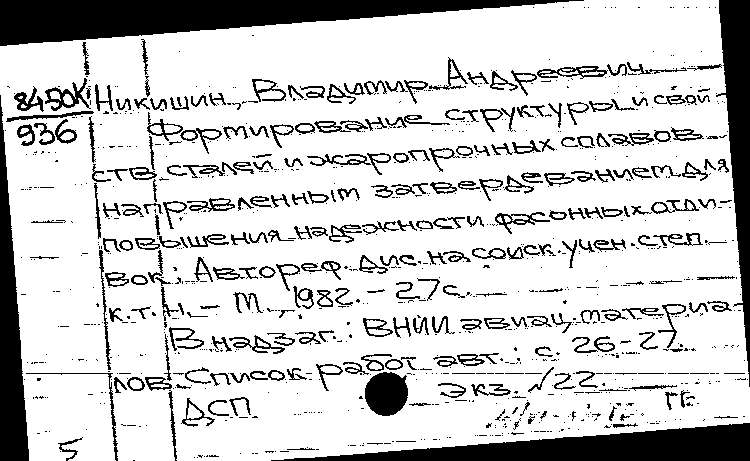 8450К
936
Никишин, Владимир Андреевич.
Формирование структуры и свой-
ств сталей и жаропрочных сплавов
направленным затвердеванием для
повышения надежности фасонных отли-
вок: Автореф. дис. на соиск. учен. степ.
к.т.н. - М., 1982. - 27с.
В надзаг.: ВНИИ авиац. материа-
лов. Список работ авт.: с. 26-27.
ДСП Экз. №22.
5